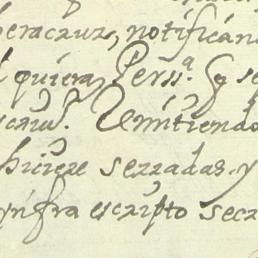 veracruz, notificán
quiera Perss.ª q se
escriu.º Remitiendo
hiciere serradas, y
ynfra escripto secr